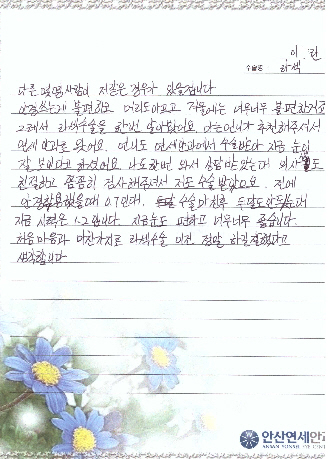 이 란
수술명 라섹
다른 많은사람이 저같은 경우가 있을겁니다
안경쓰는게 불편하고 머리도아프고 저한테는 너무너무 불편한거고
그래서 라섹수술을 한번 알아봤어요 아는언니가 추천해주셔서
연세안과를 왔어요. 언니도 연세안과에서 수술받아 지금 눈이
잘 보인다고 하셨어요 나도한번 와서 상담받았는데 의사 도
친절하고 꼼꼼히 검사해주셔서 저도 수술 받았어요. 전에
안경착용했을때 0.7인데. 수술마친후 두달도안됬는데
지금 시력은 1.2입니다. 지금눈도 편하고 너무너무 좋습니다.
처음마음과 마찬가지로 라섹수술 이건 정말 하길잘했다고
생각합니다
안산연세안과
ANSAN YONSEI EYE CENTER